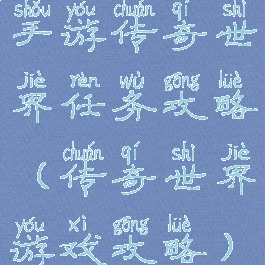 shǒu yóu chuán qí shì
手游传奇世
jiè rèn wù gōng lüè
界任务攻略
chuán qí shì jiè
（传奇世界
yóu xì gōng lüè
游戏攻略）